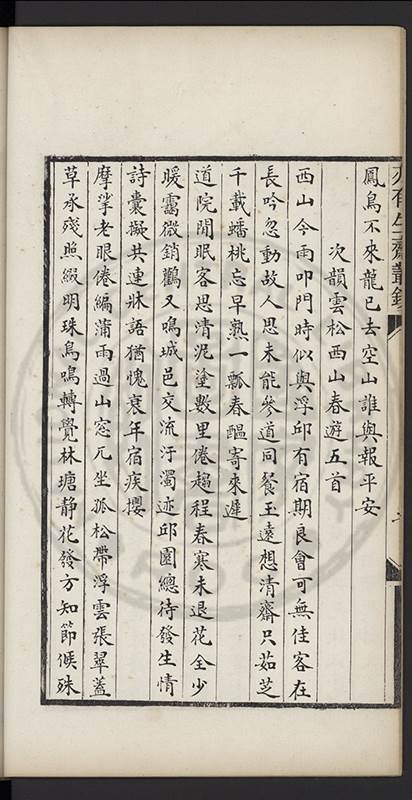 鳳鳥不來龍已去空山誰與報平安
次韻雲松西山春遊五首
西山今雨叩門時似與浮邱有宿期良會可無佳客在
長吟忽動故人思未能參道同餐玉遠想清齋只茹芝
千載蟠桃忘早熟一瓢春醞寄來遲
道院閒眠客思清泥塗數里倦趨程春寒未退花全少
暖靄微銷鸛又鳴城邑交流汙濁迹邱園總待發生情
詩囊擬共連牀語猶愧衰年宿疾攖
摩挲老眼倦編蒲雨過山窓兀坐孤松帶浮雲張翠蓋
草承殘照綴明珠鳥鳴轉覺林塘静花發方知節候殊